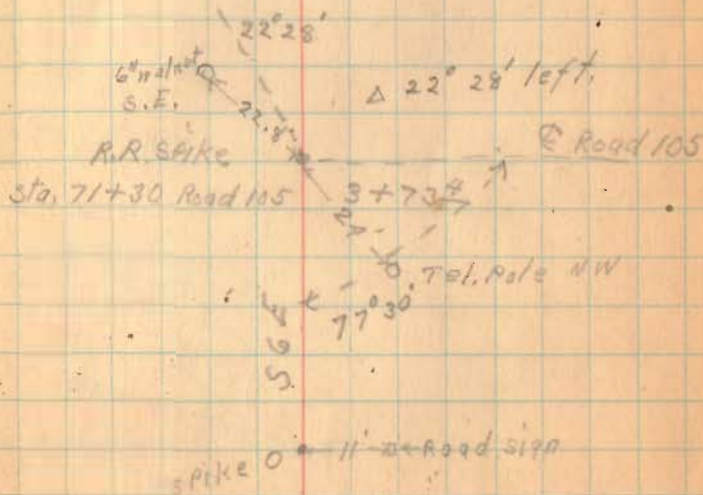 22° 28'
6" walnut
S.E.
Δ 22° 28' left.
22.8'
R.R. Spike
℄ Road 105
Sta. 71+30 Road 105
3+73.4
27
Tel. Pole NW
77° 30'
568
spike 0 11' Road sign